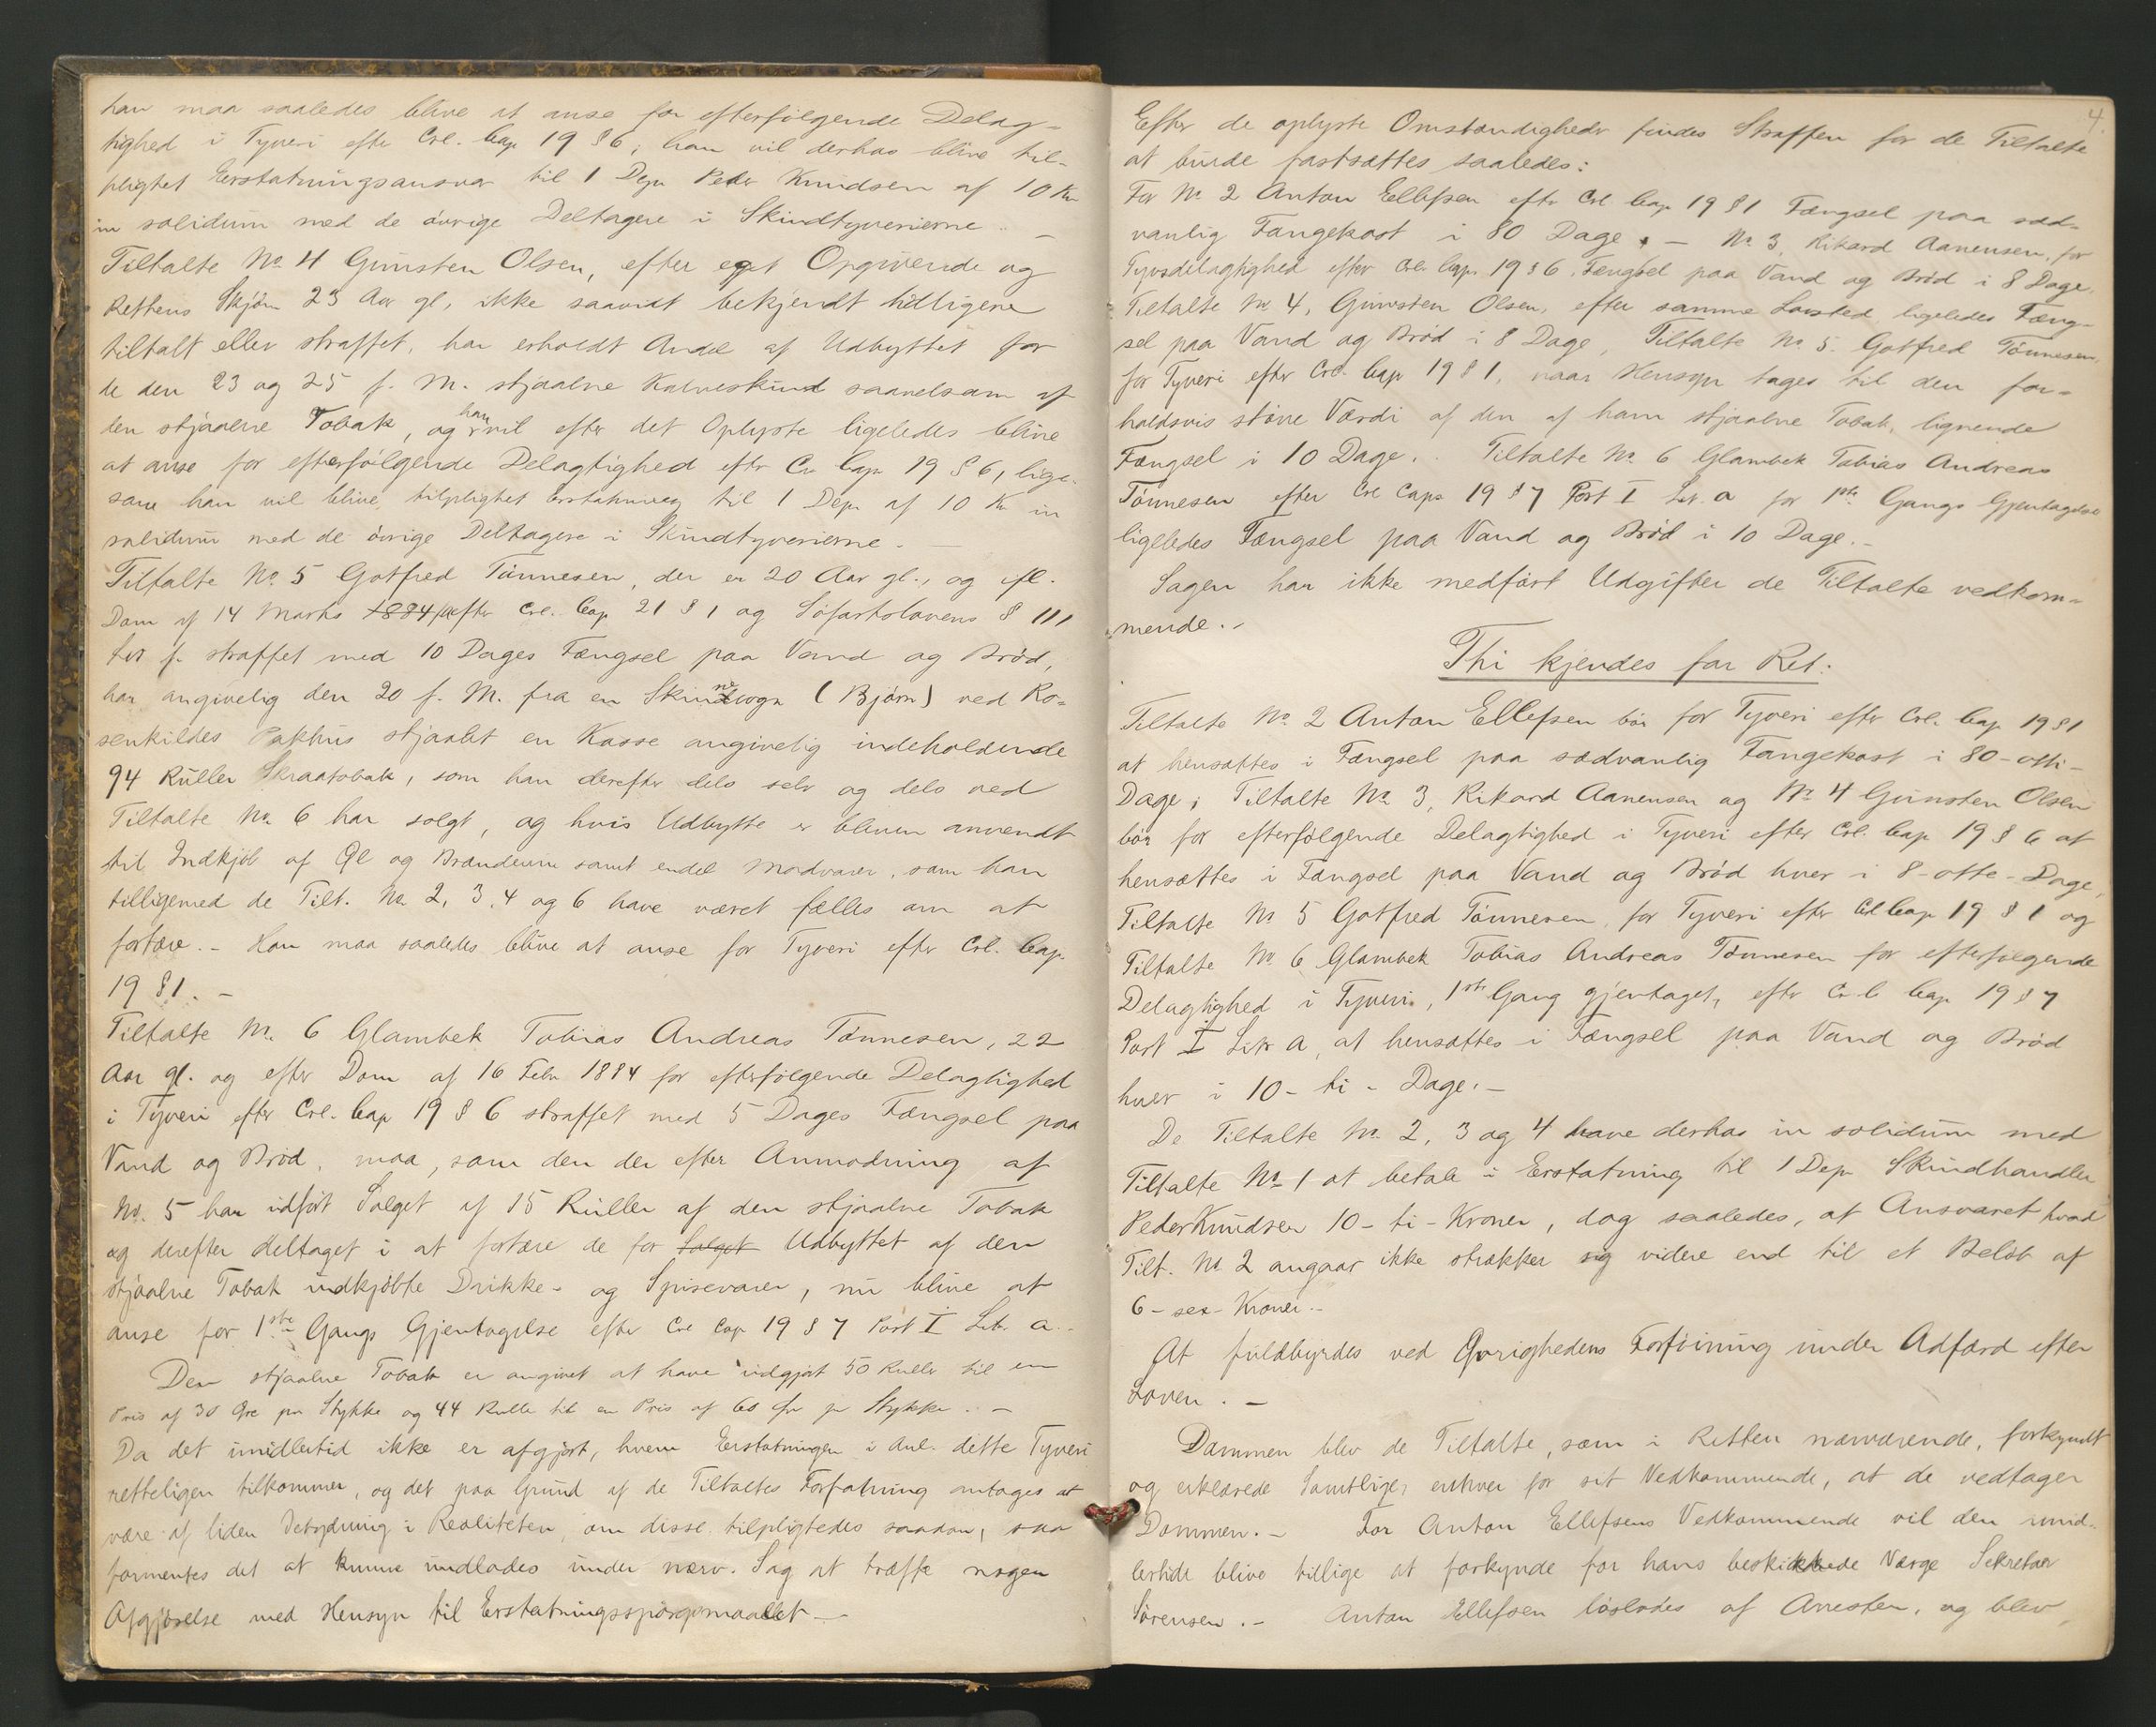 han maa saaledes blive at anse for efterfølgende Delag-
tighed i Tyveri efter Crl. Cap 19 § 6, han vil derhos blive til-
pligtet Erstatningsansvar til 1 Dep. Peder Knudsen af 10 Kr
in solidum med de øvrige Deltagere i Skindtyverierne. –
Tiltalte No 4 Gunsten Olsen, efter eget Opgivende og
Rettens Skjøn 23 Aar gl., ikke saavidt bekjendt tidligere
tiltalt eller straffet, har erholdt Andel af Udbyttet for
de den 23 og 25 f. M. stjaalne Kalveskind saavelsom af
den stjaalne Tobak, og han vil efter det Oplyste ligeledes blive
at anse for efterfølgende Delagtighed eftr Crl Cap 19 § 6, lige-
som han vil blive tilpligtet Erstatning til 1 Dep. af 10 Kr in
solidum med de øvrige Deltagere i Skindtyverierne. –
Tiltalte No 5 Gotfred Tønnesen, der er 20 Aar gl., og ifl.
Dom af 14 Marts 1884 efter Crl. Cap 21 § 1 og Søfartslovens § 111
straffet med 10 Dages Fængsel paa Vand og Brød,
har angivelig den 20 f. M. fra en Skinnevogn (Bjørn) ved Ro-
senkildes Pakhus stjaalet en Kasse angivelig indeholdende
94 Ruller Skraatobak, som han derefter dels selv og dels ved
Tiltalte No 6 har solgt, og hvis Udbytte er bleven anvendt
til Indkjøb af Øl og Brændeviin samt endel Madvarer, som han
tilligemed de Tilt. No 2, 3, 4 og 6 have været fælles om at
fortære. – Han maa saaledes blive at anse for Tyveri efter Crl. Cap.
19 § 1. –
Tiltalte No. 6 Glambek Tobias Andreas Tønnesen, 22
Aar gl. og efter Dom af 16 Febr 1884 for efterfølgende Delagtighed
i Tyveri efter Crl. Cap 19 § 6 straffet med 5 Dages Fængsel paa
Vand og Brød, maa, som den der efter Anmodning af
No. 5 har udført Salget af 15 Ruller af den stjaalne Tobak
og derefter deltaget i at fortære de for Salget Udbyttet af den
stjaalne Tobak indkjøbte Drikke- og Spisevarer, nu blive at
anse for 1ste Gangs Gjentagelse efter Crl Cap 19 § 7 Post I Litr. a. –
Den stjaalne Tobak er angivet at have udgjort 50 Ruller til en
Pris af 30 Øre pr Stykke og 44 Ruller til en Pris af 60 Øre pr Stykke. –
Da det imidlertid ikke er afgjort, hvem Erstatningen i Anl. dette Tyveri
retteligen tilkommer, og det paa Grund af de Tiltaltes Forfatning antages at
være af liden Betydning i Realiteten, om disse tilpligtedes saadan, saa
formentes det at kunne undlades under nærv. Sag at træffe nogen
Afgjørelse med Hensyn til Erstatningsspørgsmaalet –
4.
Efter de oplyste Omstændigheder findes Straffen for de Tiltalte
at burde fastsættes saaledes:
For No 2 Anton Ellefsen efter Crl Cap 19 § 1 Fængsel paa sæd-
vanlig Fangekost i 80 Dage, – No 3, Rikard Aanensen, for
Tyvsdelagtighed efter Crl. Cap. 19 § 6. Fængsel paa Vand og Brød i 8 Dage.
Tiltalte No 4, Gunsten Olsen, efter samme Lovsted ligeledes Fæng-
sel paa Vand og Brød i 8 Dage, Tiltalte No 5. Gotfred Tønnesen,
for Tyveri efter Crl. Cap 19 § 1, naar Hensyn tages til den for-
holdsvis større Værdi af den af ham stjaalne Tobak, lignende
Fængsel i 10 Dage. Tiltalte No 6 Glambek Tobias Andreas
Tønnesen efter Crl Cap. 19 § 7 Post I Litr. a for 1ste Gangs Gjentagelse
ligeledes Fængsel paa Vand og Brød i 10 Dage. –
Sagen har ikke medført Udgifter de Tiltalte vedkom-
mende. –
Thi kjendes for Ret:
Tiltalte No 2 Anton Ellefsen bør for Tyveri efter Crl. Cap 19 § 1
at hensættes i Fængsel paa sædvanlig Fangekost i 80 – otti –
Dage; Tiltalte No 3, Rikard Aanensen og No 4 Gunsten Olsen
bør for efterfølgende Delagtighed i Tyveri efter Crl. Cap 19 § 6 at
hensættes i Fængsel paa Vand og Brød hver i 8 – otte – Dage,
Tiltalte No 5 Gotfred Tønnesen for Tyveri efter Crl Cap 19 § 1 og
Tiltalte No 6 Glambek Tobias Andreas Tønnesen for efterfølgende
Delagtighed i Tyveri, 1ste Gang gjentaget, efter Crl Cap 19 § 7
Post I Litr a, at hensættes i Fængsel paa Vand og Brød
hver i 10 – ti – Dage. –
De Tiltalte No. 2, 3 og 4 have derhos in solidum med
Tiltalte No 1 at betale i Erstatning til 1 Dep. Skindhandler
Peder Knudsen 10 – ti – Kroner, dog saaledes, at Ansvaret hvad
Tilt. No 2 angaar ikke strækker sig videre end til et Beløb af
6 – sex – Kroner. –
At fuldbyrdes ved Øvrighedens Forføining under Adfærd efter
Loven. –
Dommen blev de Tiltalte, som i Retten nærværende, forkyndt
og erklærede Samtlige, enhver for sit Vedkommende, at de vedtager
Dommen. – For Anton Ellefsens Vedkommende vil den imid-
lertid blive tillige at forkynde for hans beskikkede Værge Sekretær
Sørensen. – Anton Ellefsen løslodes af Arresten, og blev